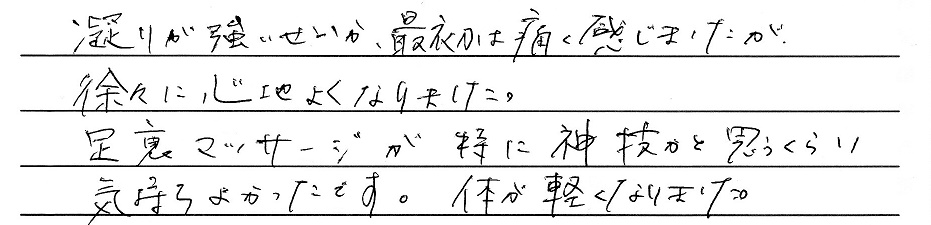 凝りが強いせいか、最初は痛く感じましたが、
徐々に心地よくなりました。
足裏マッサージが特に神技かと思うくらい
気持ちよかったです。体が軽くなりました。